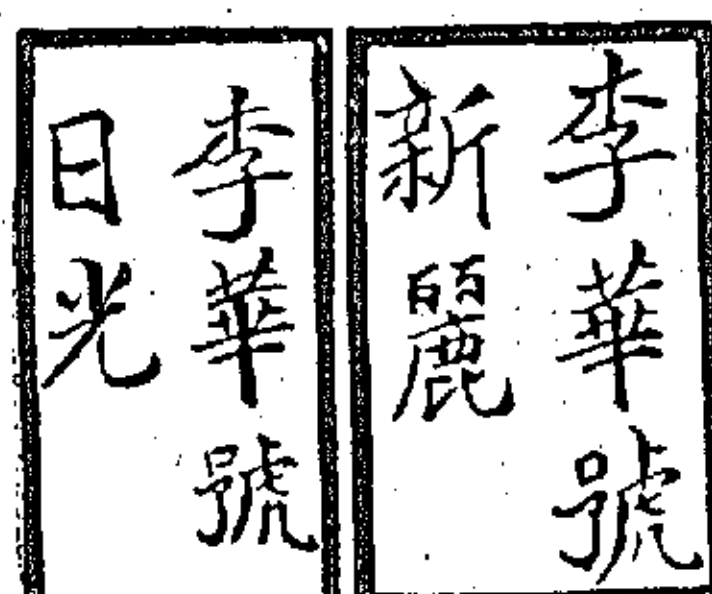 李華號
新麗
李華號
日光